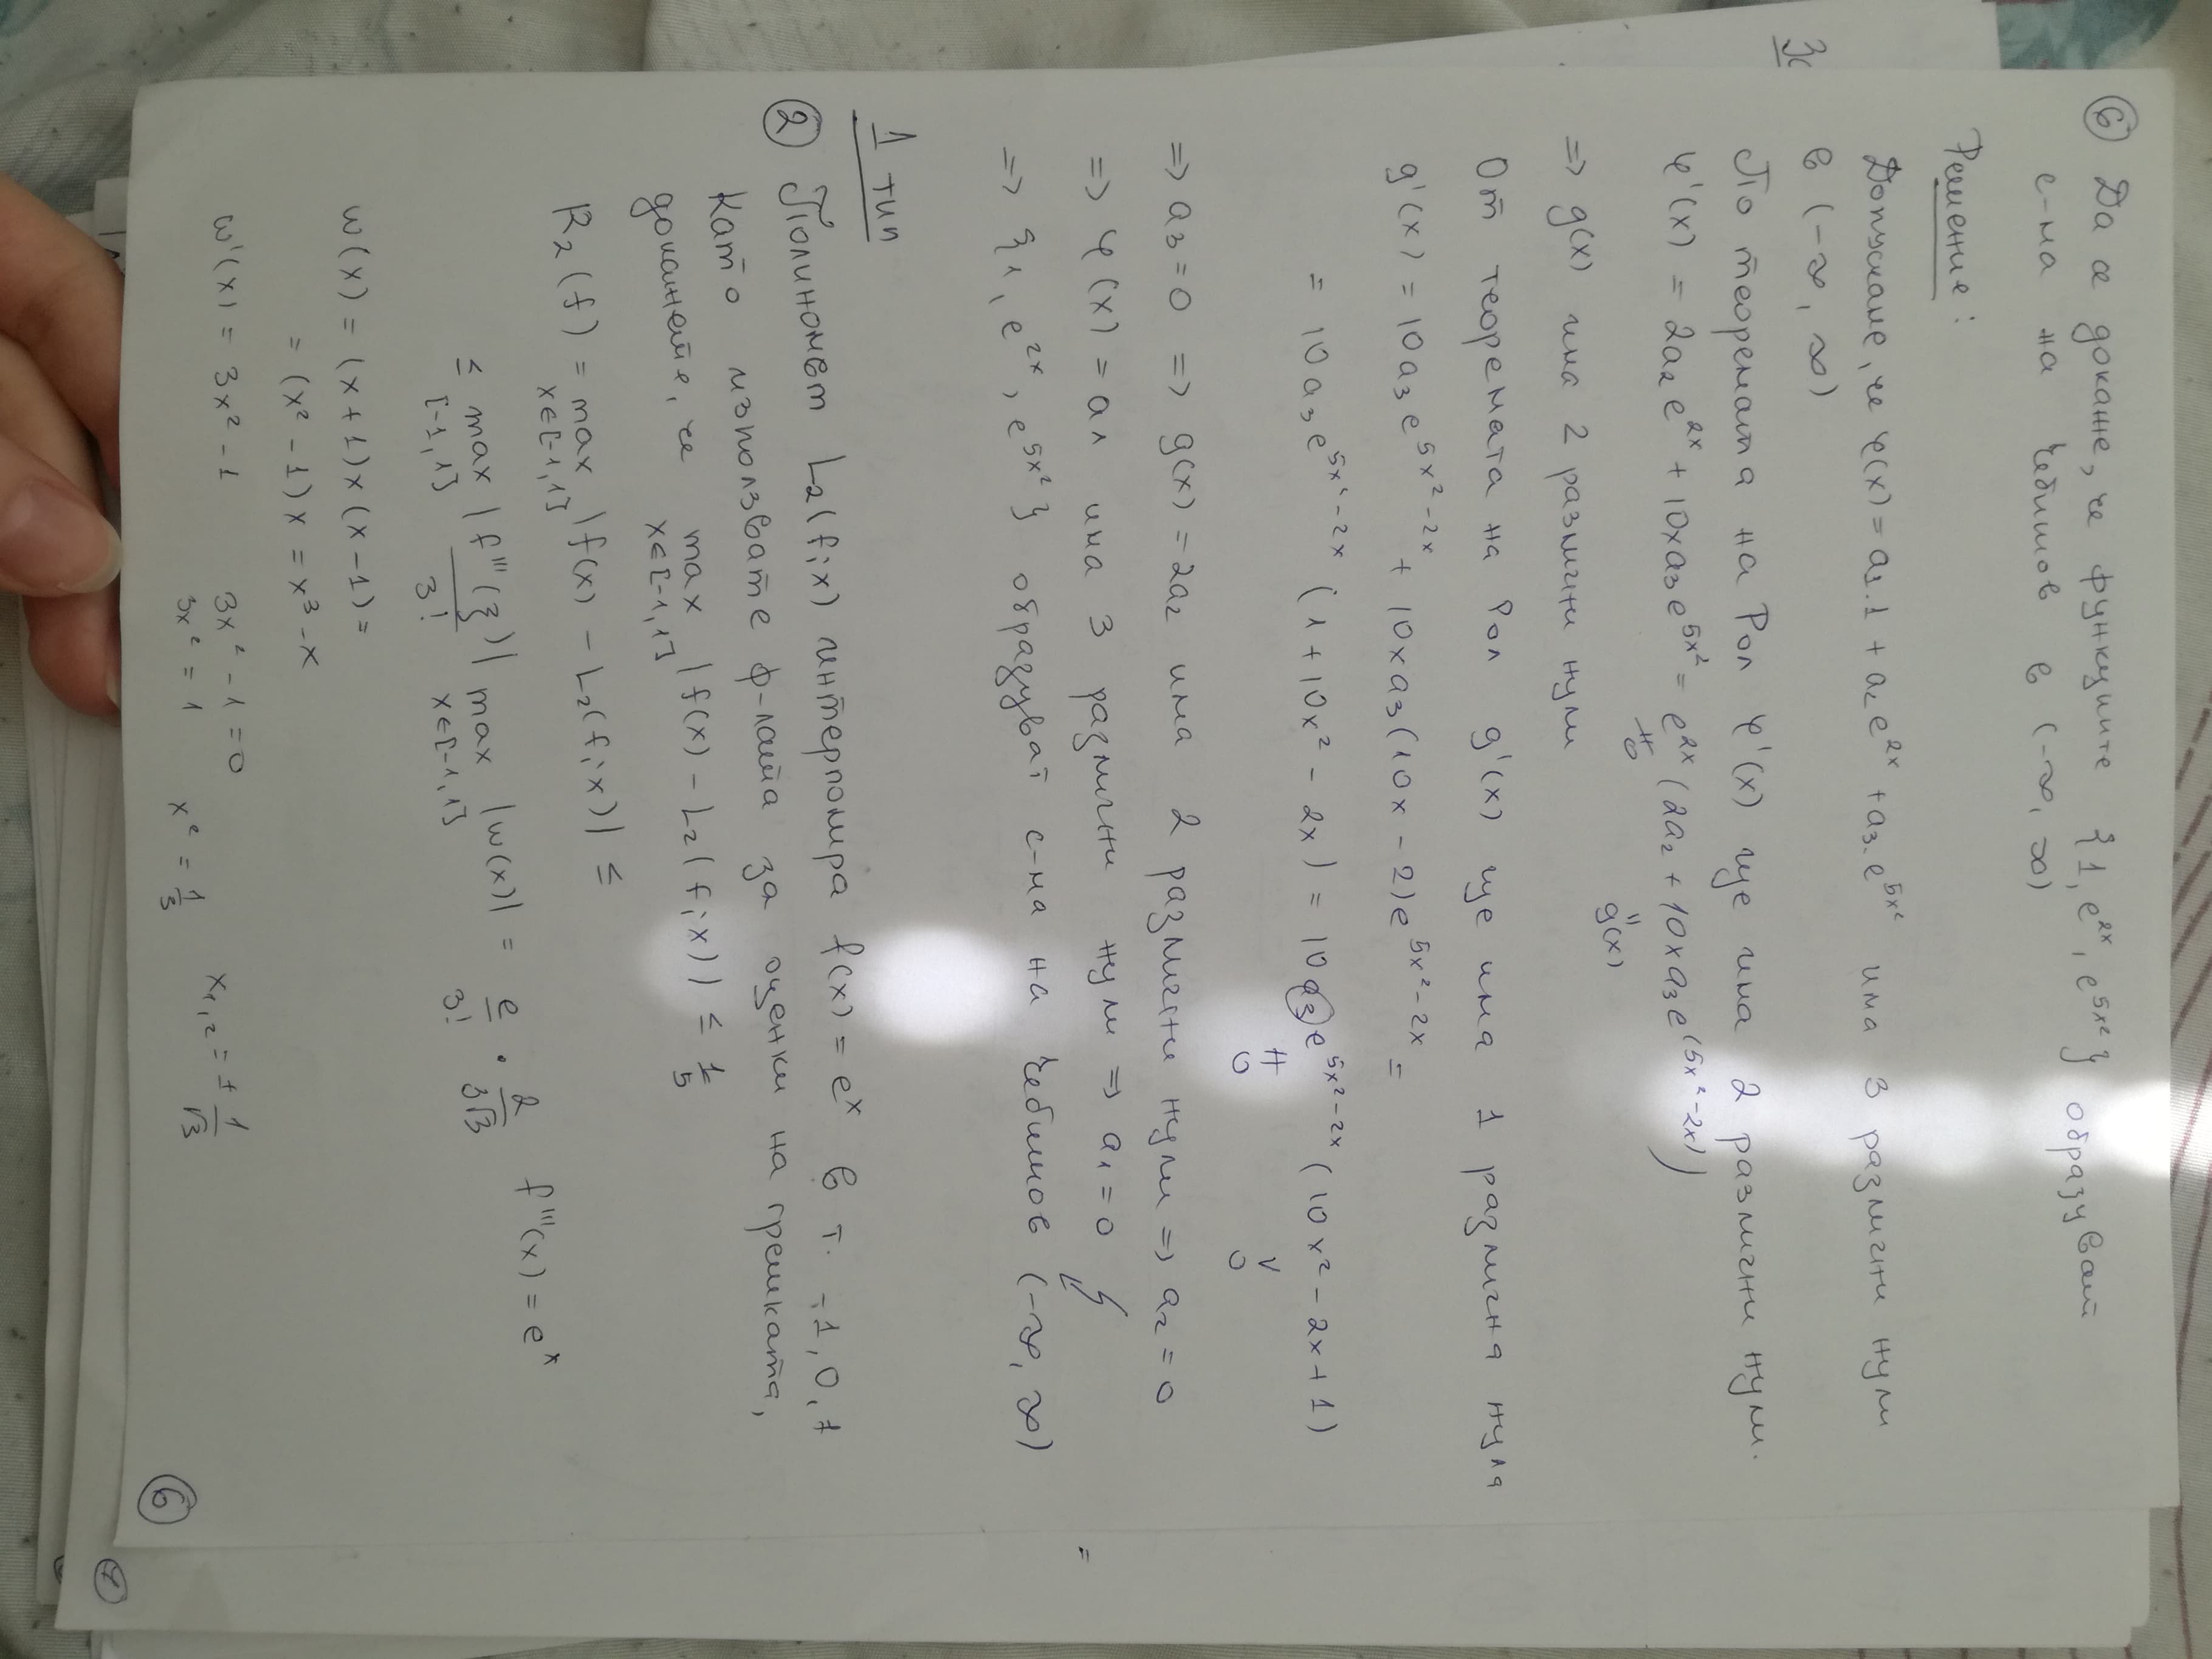 ⑥ Да се докаже, че функциите {1, e^{2x}, e^{5x²}} образуват
с-ма на Чебишов в (-∞, ∞)
Решение:
Допускаме, че φ(x) = a₁.1 + a₂e^{2x} + a₃.e^{5x²} има 3 различни нули
в (-∞, ∞)
По теоремата на Рол φ'(x) ще има 2 различни нули.
φ'(x) = 2a₂e^{2x} + 10xa₃e^{5x²} = e^{2x} (2a₂ + 10xa₃e^{(5x²-2x)})
≠ 0
" g(x)
=> g(x) има 2 различни нули
От теоремата на Рол g'(x) ще има 1 различна нула
g'(x) = 10a₃e^{5x²-2x} + 10xa₃(10x-2)e^{5x²-2x} =
= 10a₃e^{5x²-2x} (1+10x²-2x) = 10a₃e^{5x²-2x} (10x²-2x+1)
≠ 0 V 0
=> a₃=0 => g(x)=2a₂ има 2 различни нули => a₂=0
=> φ(x) = a₁ има 3 различни нули => a₁=0
=> {1, e^{2x}, e^{5x²}} образуват с-ма на Чебишов (-∞, ∞)
1 тип
② Полиномът L₂(f;x) интерполира f(x) = e^x в т. -1, 0, 1
Като използвате ф-лата за оценки на грешката,
докажете, че max |f(x) - L₂(f;x)| ≤ 1/5
x∈[-1,1]
R₂(f) = max |f(x) - L₂(f;x)| ≤
x∈[-1,1]
≤ max |f'''(ξ)|/3! max |w(x)| = e/3! . 2/3√3 f'''(x) = e^x
[-1,1] x∈[-1,1]
w(x) = (x+1)x(x-1) =
= (x²-1)x = x³-x
w'(x) = 3x²-1 3x²-1=0 x₁,₂ = ± 1/√3
3x² = 1 x² = 1/3
⑥
⑦